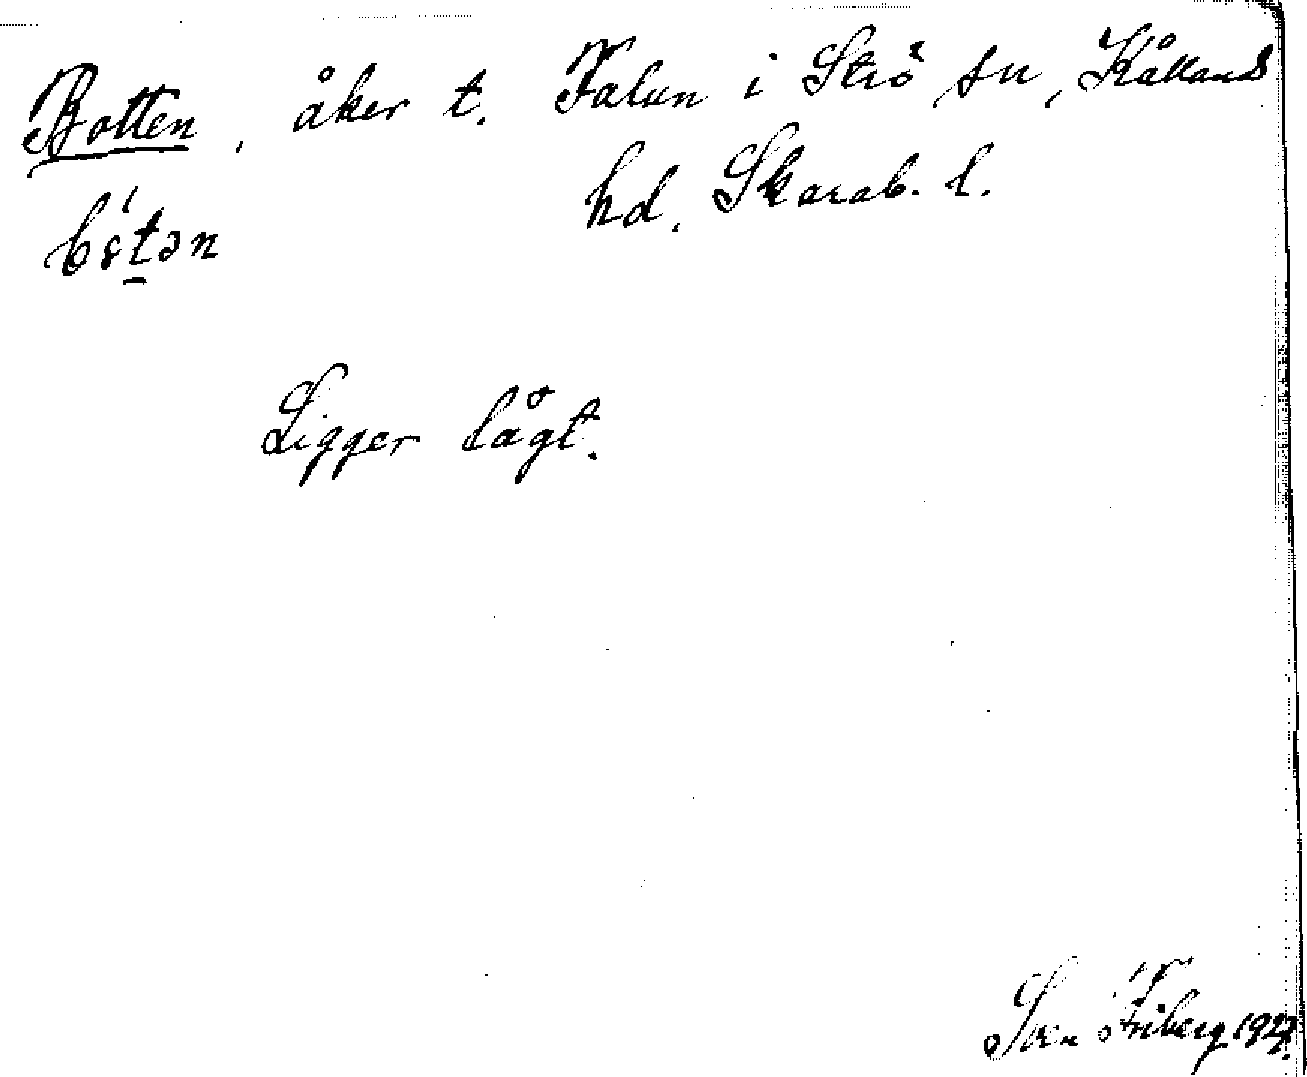 Botten, åker t. Falun i Strö sn, Kållands
hd. Skarab. l.
Ligger lågt.
Sven Friberg 1927.